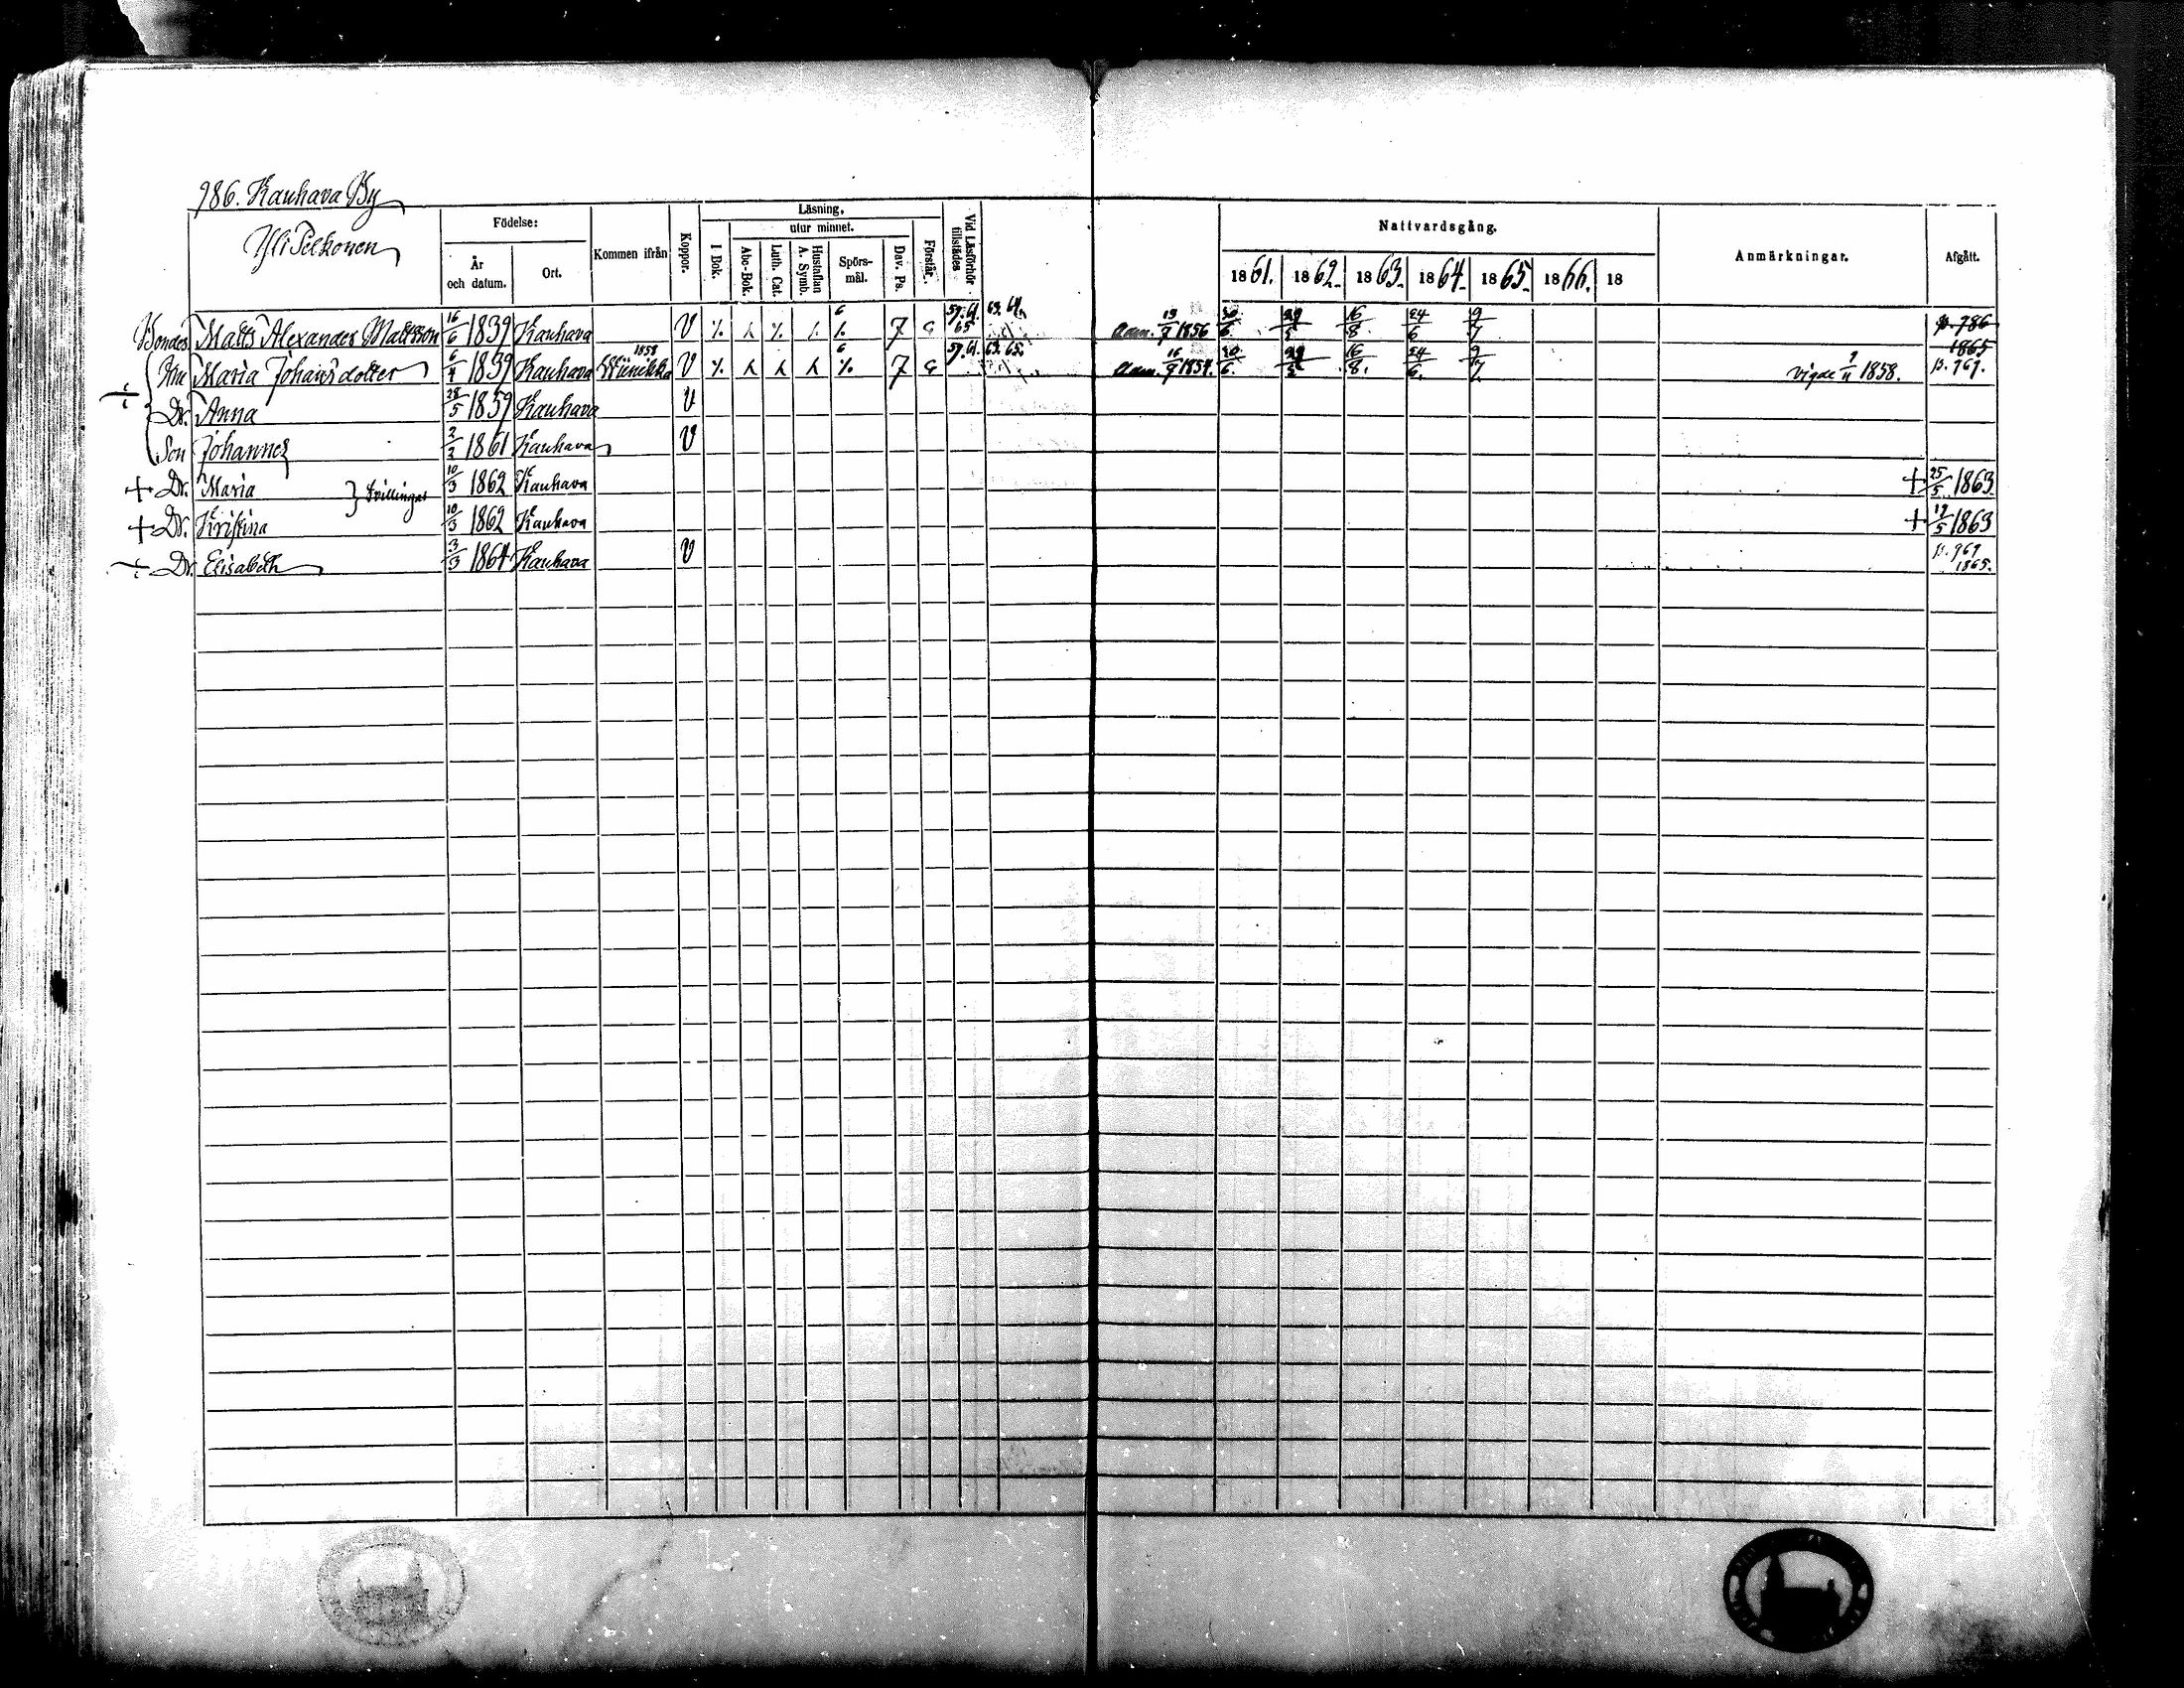 986. Kauhava By
Yli Pelkonen
Födelse:
År och datum.
Ort.
Kommen ifrån
Koppor.
Läsning,
utur minnet.
I Bok.
Abc-Bok.
Luth. Cat.
Hustaflan A. Symb.
Spörs-mål.
Dav. Ps.
Förstår.
Vid Läsförhör tillstädes
Nattvardsgång.
1861. 1862. 1863. 1864. 1865. 1866. 18
Anmärkningar.
Afgått.
Bonden Matts Alexander Mattsson 16/6 1839 Kauhava V 7 57. 61. 63. 64. 65 Adm. 1856 30/6 16/8 24/6 9/7 p. 786
Hu Maria Johansdotter 6/4 1839 Kauhava 1858 V 7 57. 61. 63. 65. Adm. 30/6 16/8. 24/6. 9/7 vigde 1858. 1865 p. 767.
Dr. Anna 28/5 1859 Kauhava V
Son Johannes 1861 Kauhava V
+ Dr. Maria } tvillingar 10/3 1862 Kauhava + 25/5 1863.
+ Dr. Kristina 10/3 1862 Kauhava + 12/5 1863
Dr. Elisabeth 3/3 1864 Kauhava V 1865.